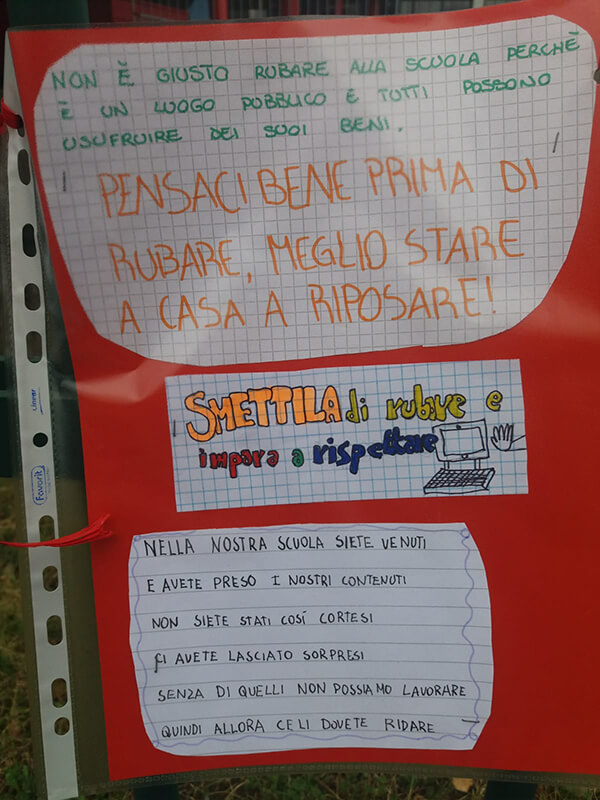 NON È GIUSTO RUBARE ALLA SCUOLA PERCHÈ
È UN LUOGO PUBBLICO E TUTTI POSSONO
USUFRUIRE DEI SUOI BENI.
PENSACI BENE PRIMA DI
RUBARE, MEGLIO STARE
A CASA A RIPOSARE!
SMETTILA di rubare e
impara a rispettare
NELLA NOSTRA SCUOLA SIETE VENUTI
E AVETE PRESO I NOSTRI CONTENUTI
NON SIETE STATI COSÍ CORTESI
CI AVETE LASCIATO SORPRESI
SENZA DI QUELLI NON POSSIAMO LAVORARE
QUINDI ALLORA CE LI DOVETE RIDARE
Favorit